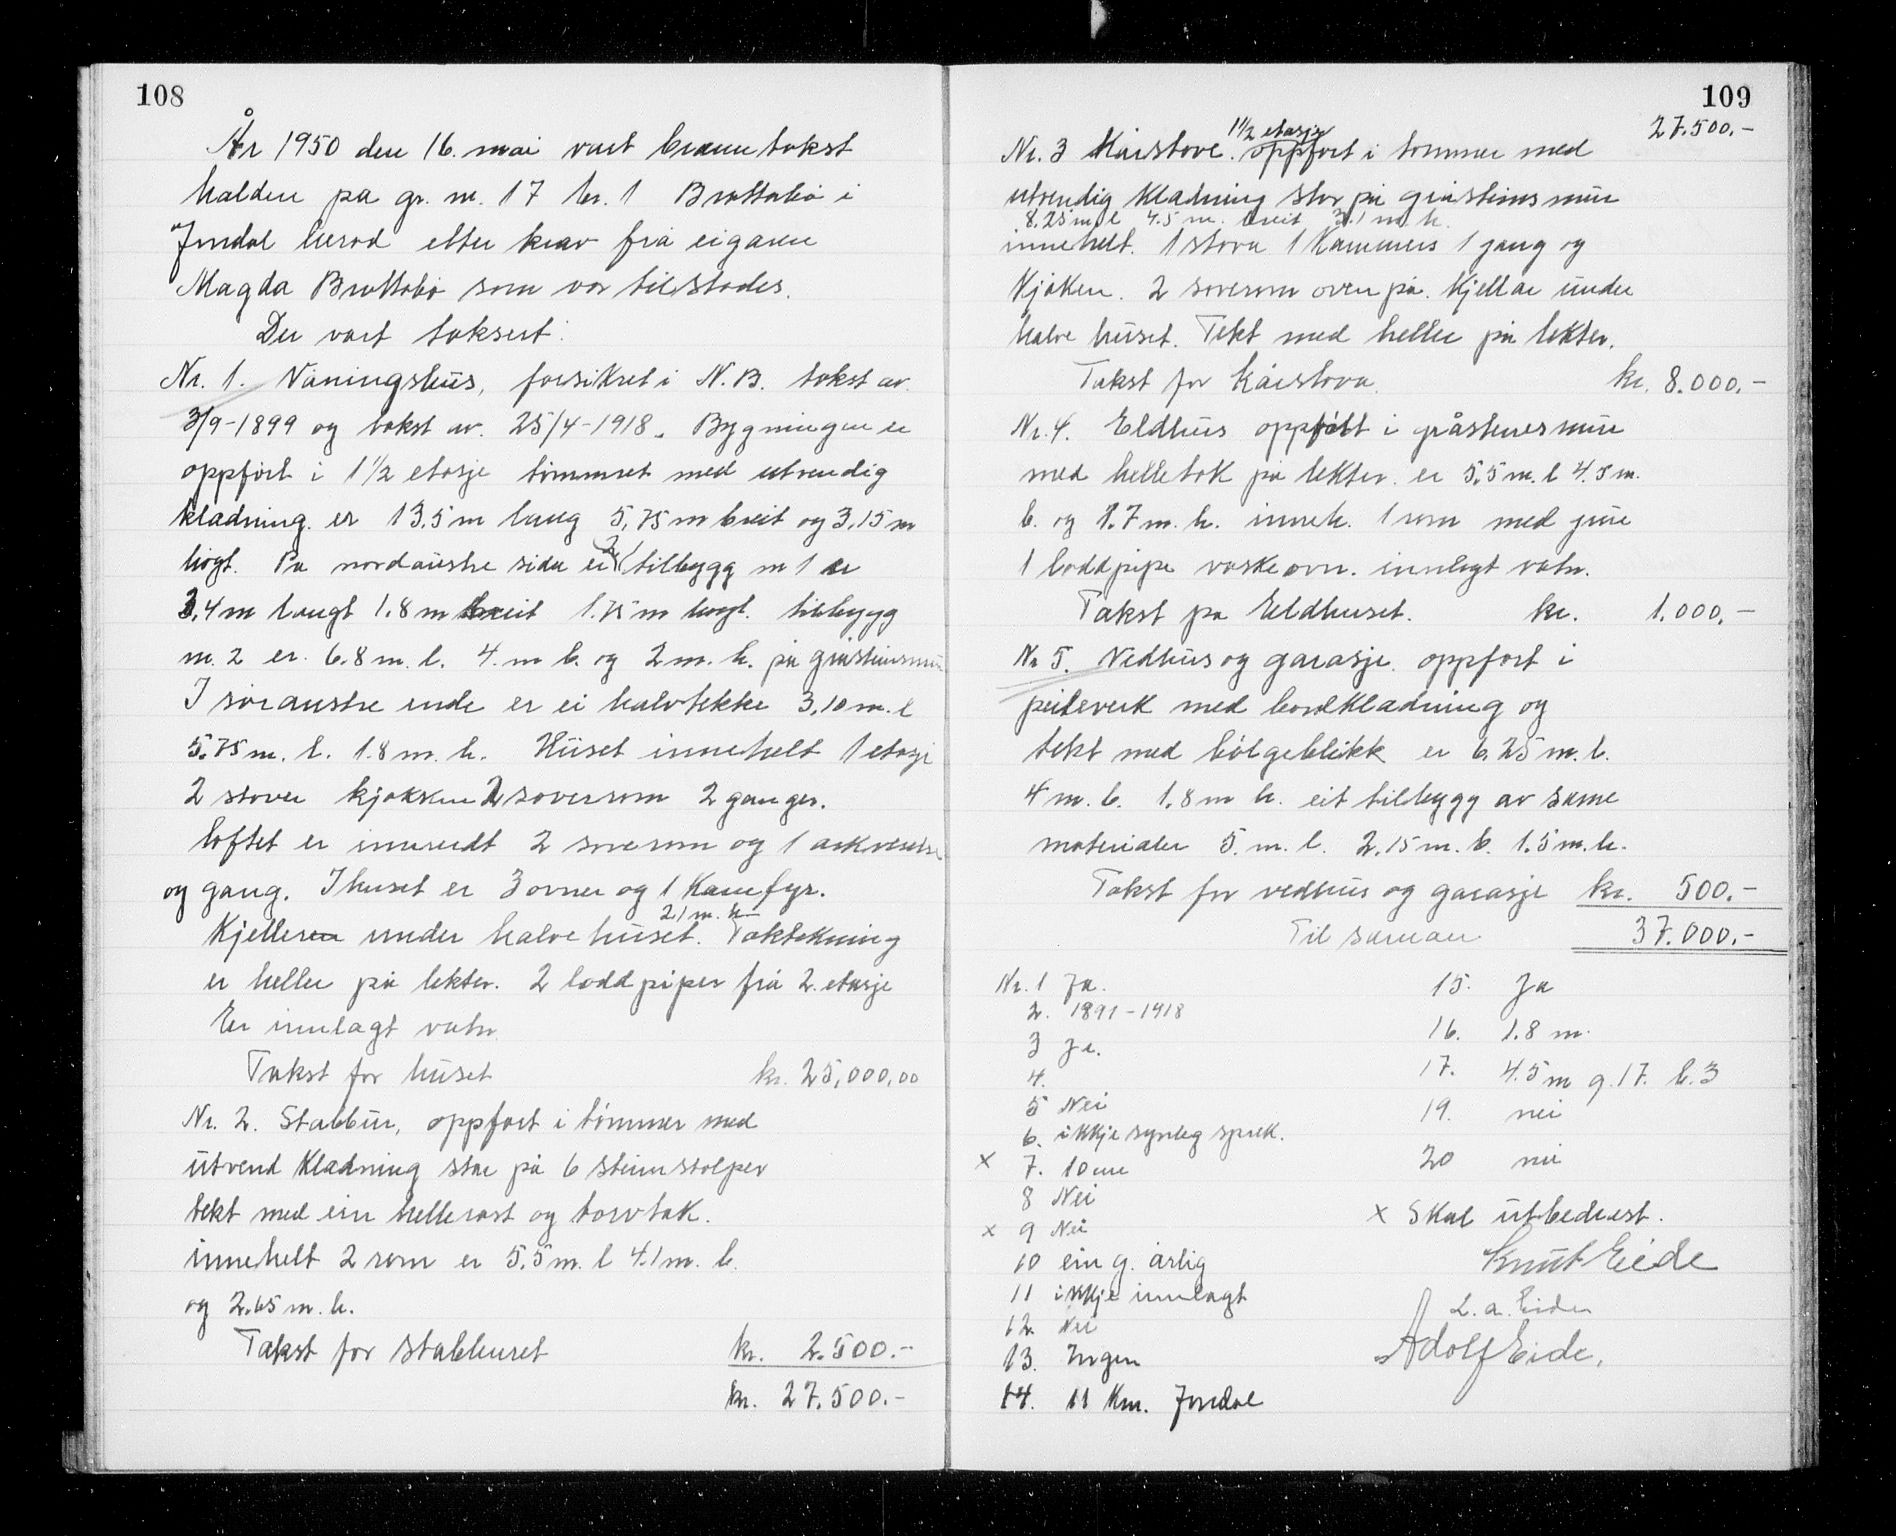 108
År 1950 den 16. mai vart branntakst
halden på gr. nr. 17 br. 1 Brattabø i
Jondal herad etter krav frå eigaren
Magda Brattabø som var tilstades.
Der vart taksert:
Nr. 1. Våningshus, forsikret i N.B. takst av
3/9-1899 og takst av. 25/4-1918. Bygningen er
oppført i 1½ etasje tømmret med utvendig
kladning. er 13,5 m lang 5,75 m breit og 3,15 m
høgt. På nordaustre sida er 2 tilbygg nr 1 er
3,4 m langt 1.8 m breit 1.75 m høgt. tilbygg
nr. 2 er. 6.8 m. l. 4. m b. og 2 m. h. på gråsteinsmur
I søraustre ende er ei halvtekke 3,10 m. l
5.75 m. b. 1.8 m. h. Huset innehelt 1 etasje
2 stover kjøkken 2 soverom 2 ganger.
loftet er innreidt 2 soverom og 1 arkverelse
og gang. I huset er 3 ovner og 1 Kamfyr.
2,1 m. h
Kjelleren under halve huset. Taktekning
er heller på lekter. 2 loddpiper frå 2. etasje
Er innlagt vatn
Takst for huset kr. 25,000,00
Nr. 2. Stabbur, oppført i tømmer med
utvend kladning står på 6 steinstolper
tekt med ein hellerast og torvtak.
innehelt 2 rom er 5,5 m. l 4.1 m. b.
og 2.65 m. h.
Takst for stabburet kr. 2.500.-
kr. 27.500.-
109
27.500.-
1½ etasje
Nr. 3 Kårstove. oppført i tømmer med
utvendig kladning står på gråsteinsmur
8,25 m l 4.5 m. breit 2.1 m h.
innehelt. 1 stova 1 Kammers 1 gang og
Kjøken. 2 soverom oven på. Kjellar under
halve huset. Tekt med heller på lekter.
Takst for Kårstova. kr. 8.000.-
Nr. 4. Eldhus oppført i gråsteinsmur
med helletak på lekter. er 5,5 m. l 4.5 m.
b. og 1.7 m. h. inneh. 1 rom med grue
1 loddpipe vaskeovn. innlagt vatn.
Takst på Eldhuset. kr. 1.000.-
Nr 5. Vedhus og garasje. oppført i
peileverk med bordkladning og
tekt med bølgeblikk er 6,25 m. l.
4 m. b. 1.8 m h. eit tilbygg av same
materialer 5. m. l. 2.15 m. b. 1.5 m. h.
Takst for vedhus og garasje kr. 500.-
Til saman 37.000.-
Nr. 1 Ja.
2. 1891-1918
3 Ja.
4.
5 Nei
6. ikkje synleg sprek.
x 7. 10 cm
8 Nei
x 9 Nei
10 ein g. årlig
11 ikkje innlagt
12. Nei
13. Ingen
14. 11 Km. Jondal
15. Ja
16. 1.8 m.
17. 4.5 m g. 17. b. 3
19. nei
20 nei
x Skal utbedrast.
Knut Eide
L. A. Eiden
Adolf Eide.